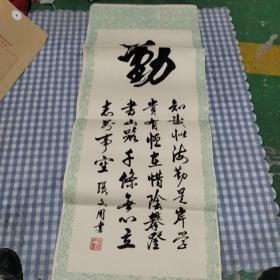 勤
知識海勤是岸学
貴有恒在惜陰攀登
書山路千條無心立
志萬事空 張文用書